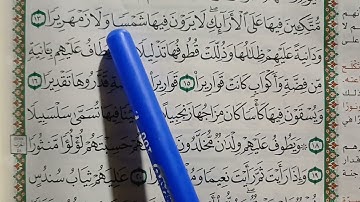 مُّتَّكِـِٔينَ فِيهَا عَلَى ٱلْأَرَآئِكِ لَا يَرَوْنَ فِيهَا شَمْسًا وَلَا زَمْهَرِيرًا ١٣
وَدَانِيَةً عَلَيْهِمْ ظِلَـٰلُهَا وَذُلِّلَتْ قُطُوفُهَا تَذْلِيلًا يُطَافُ عَلَيْهِم بِـَٔانِيَةٍ
مِّن فِضَّةٍ وَأَكْوَابٍ كَانَتْ قَوَارِيرَا۠ ١٥ مِن فِضَّةٍ قَدَّرُوهَا تَقْدِيرًا ١٦
وَيُسْقَوْنَ فِيهَا كَأْسًا كَانَ مِزَاجُهَا زَنجَبِيلًا فِيهَا تُسَمَّىٰ سَلْسَبِيلًا
١٨ ۞ وَيَطُوفُ عَلَيْهِمْ وِلْدَٰنٌ مُّخَلَّدُونَ حَسِبْتَهُمْ لُؤْلُؤًا مَّنثُورًا
١٩ وَإِذَا رَأَيْتَ ثَمَّ رَأَيْتَ نَعِيمًا عَـٰلِيَهُمْ ثِيَابُ سُندُسٍ